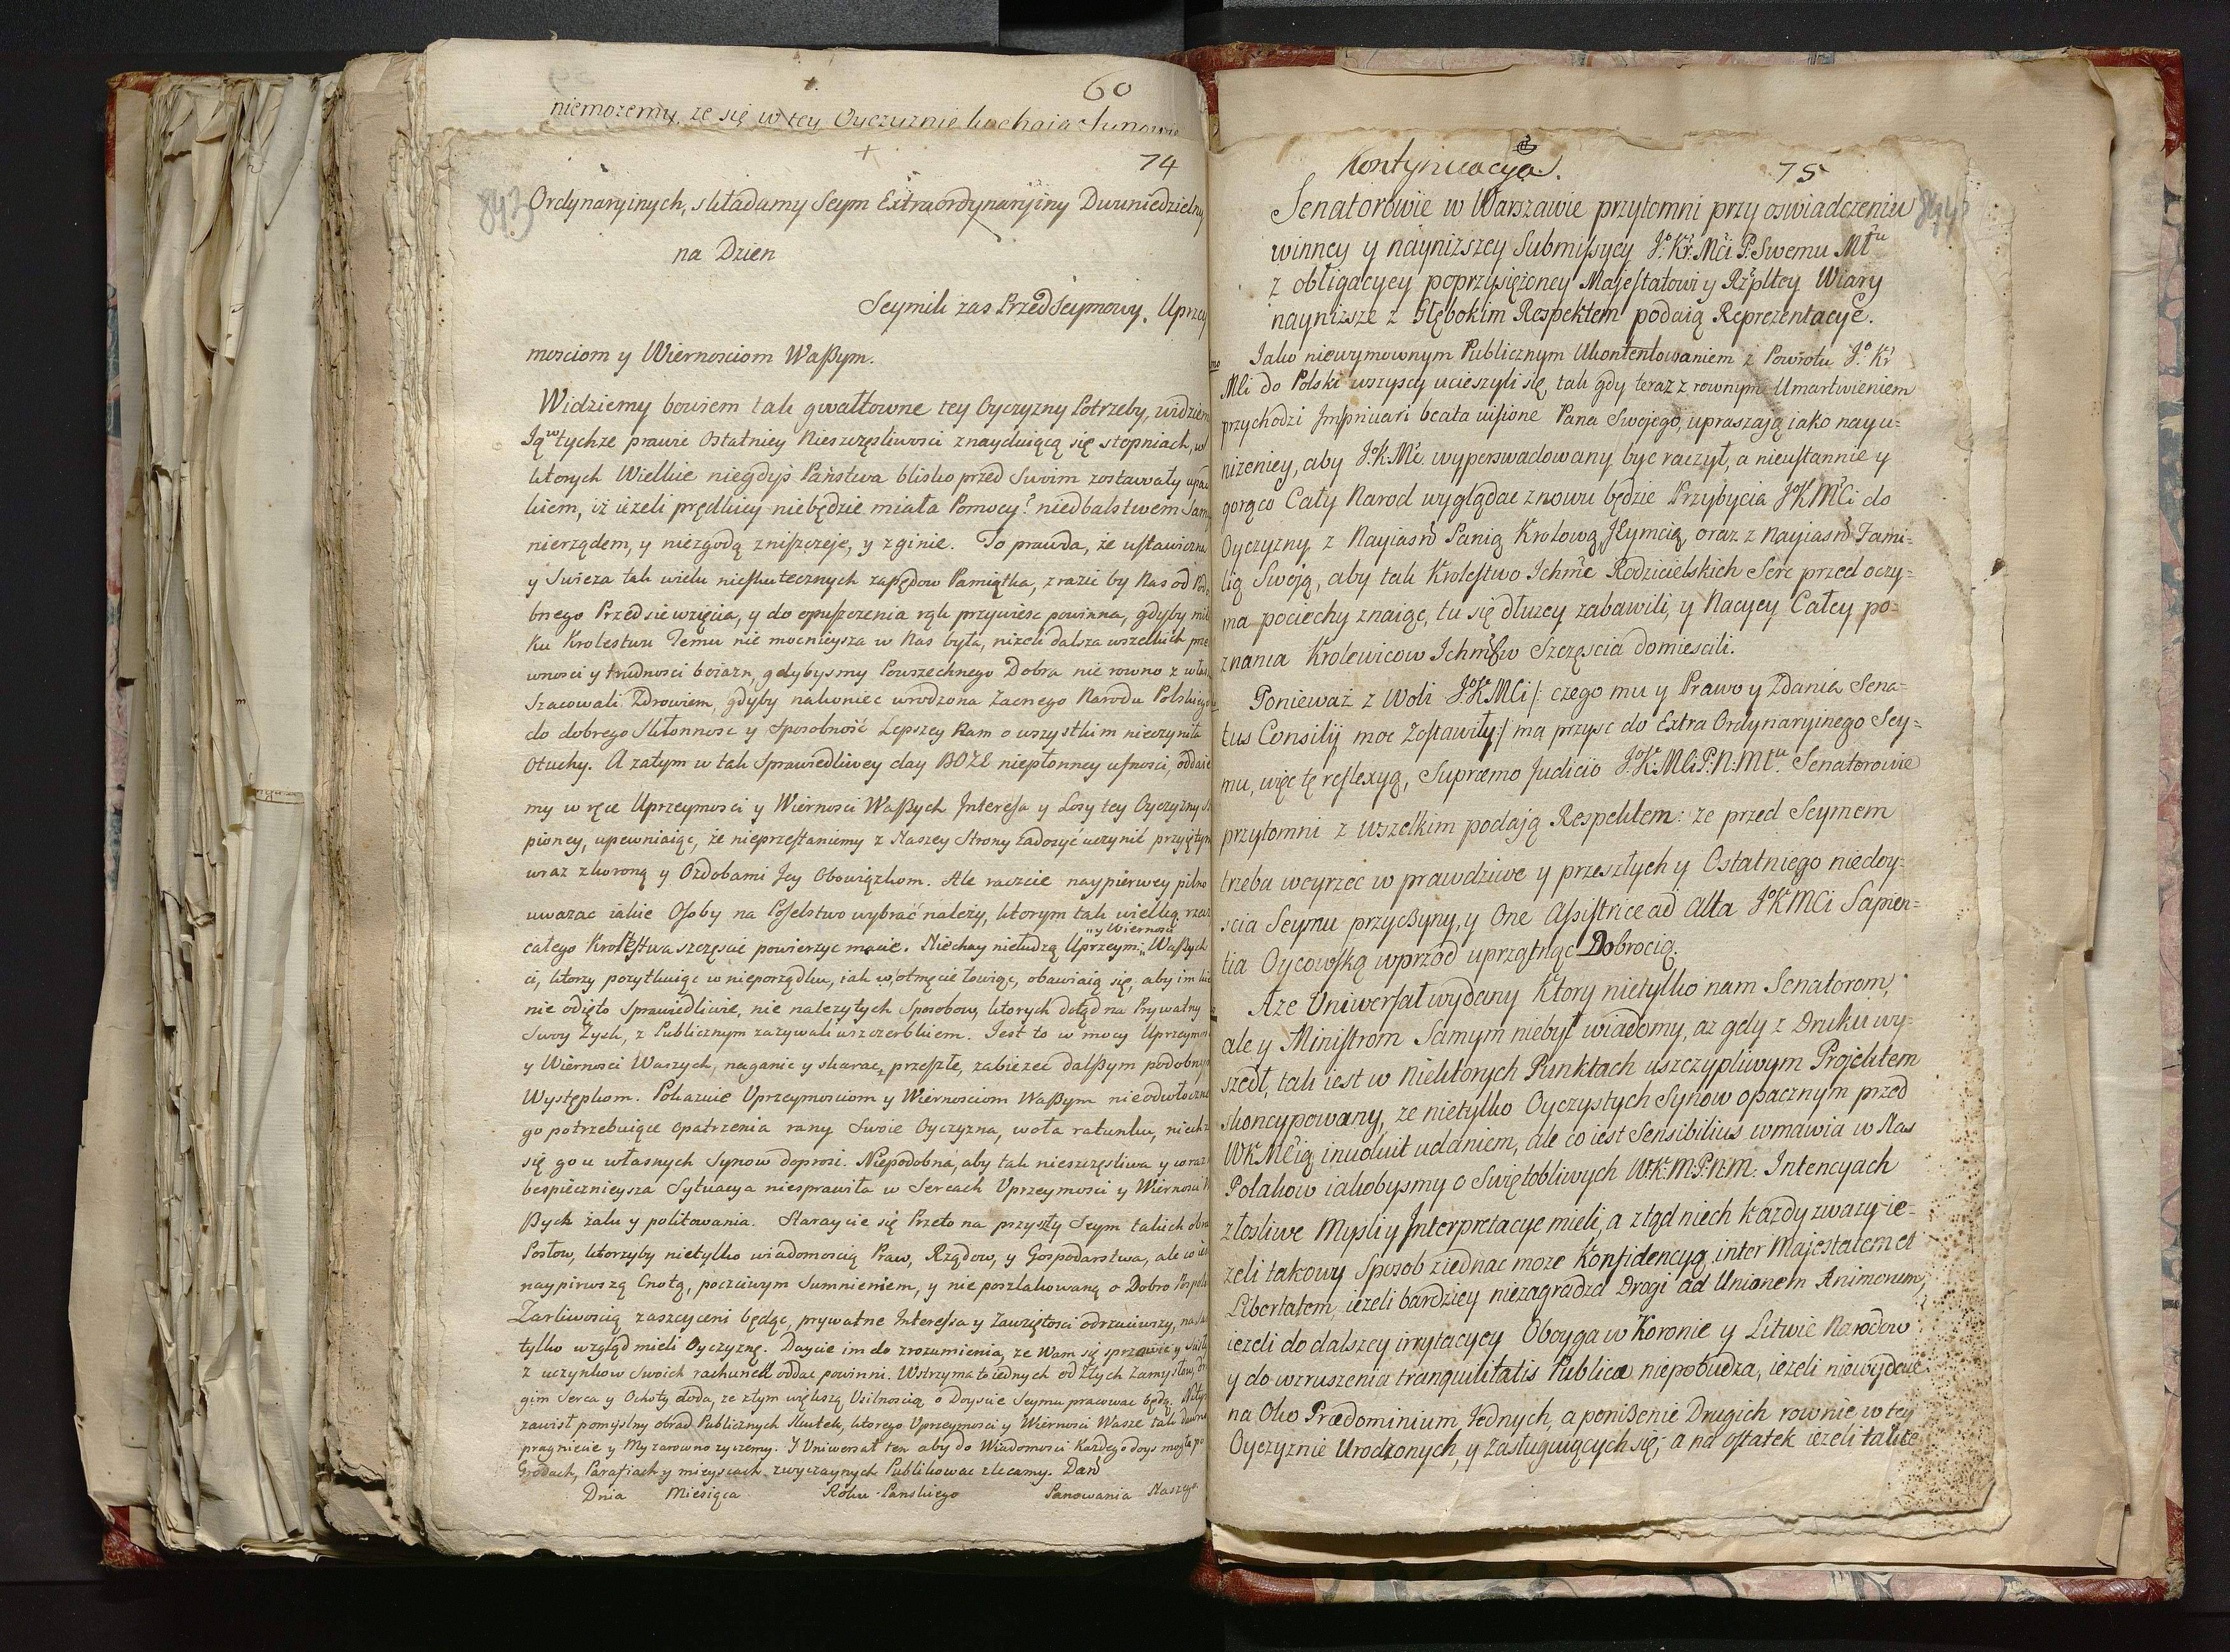 60
niemozemy, ze się w tey Oyczyznie kochaią Synowie
74
Ordynaryinych, składamy Seym Extraordynaryiny Dwuniedzielny
na Dzien
Seymik zas PrzedSeymowy. Uprzey
mosciom y Wiernosciom Waßym.
Widziemy bowiem tak gwałtowne tey Oyczyzny Potrzeby, widziem
Ią w tychze prawie Ostatniey Nieszczęsliwosci znayduiącą się stopniach, w
ktorych Wielkie niegdyś Państwa blisko przed Swoim zostawały upad
kiem, iż iezeli prędkiey niebędzie miała Pomocy? niedbalstwem Sam
nierządem, y niezgodą zniszczeje, y zginie. To prawda, że ustawiczna
y Swieza tak wielu nieskutecznych zapędow Pamiątka, zrazić by Nas od Podo
bnego Przedsiewzięcia, y do opuszczenia rąk przywiesc powinna, gdyby mił
ku Krolestwu Temu nie mocnieysza w Nas była, nizeli dalsza wszelkich prze
wnosci y trudnosci boiazn, gdybysmy Powszechnego Dobra nie rowno z włas
Szacowali Zdrowiem, gdyby nakoniec wrodzona Zacnego Narodu Polskiego
do dobrego Skłonnosc y Sposobność Lepszey Nam o wszystkim nieczyniła
Otuchy. A zatym w tak Sprawiedliwey day BOZE niepłonney ufnosci, oddaie
my w ręce Uprzeymosci y Wiernosci Waßych Interessa y Losy tey Oyczyzny
pioney, upewniaiąc, że nieprzestaniemy z Naszey Strony zadosyć uczynić przyiętym
wraz z koroną y Ozdobami Jey Obowiązkom. Ale raczcie naypierwey pilno
uwazac iakie Osoby na Poselstwo wybrać należy, ktorym tak wielką rzecz
"y Wiernosci
całego Krolestwa szczęscie powierzyc macie. Niechay niełudzą Uprzeym: " Waßych
ci, ktorzy pozytkuiąc w nieporządku, iak w otmęcie łowiąc, obawiaią się, aby im
nie odięto Sprawiedliwie, nie nalezytych Sposobow, ktorych dotąd na Prywatny
Swoy Zysk, z Publicznym zazywali uszczerbkiem. Jest to w mocy Uprzeymos
y Wiernosci Waszych, naganic y skarac, przeszłe, zabiezec dalßym podobny
Występkom. Pokazuie Uprzeymosciom y Wiernosciom Waßym nieodwłoczne
go potrzebuiące opatrzenia rany Swoie Oyczyzna, woła ratunku, niech
się go u własnych Synow doprosi. Niepodobna, aby tak nieszczęsliwa y coraz
bespiecznieysza Sytuacya niesprawiła w Sercach Uprzeymosci y Wiernosci
ßych żalu y politowania. Staraycie się Przeto na przyszły Seym takich obra
Posłow, ktorzyby nietylko wiadomoscią Praw, Rządow, y Gospodarstwa, ale co ies
naypirwszą Cnotą, poczciwym Sumnieniem, y nie poszlakowaną o Dobro Pospol
Zarliwoscią zaszczyceni będąc, prywatne Interessa y Zawziętosci odrzuciwszy, na
tylko wzgląd mieli Oyczyznę. Daycie im do zrozumienia, ze Wam się sprawić y
z uczynkow Swoich rachunek oddac powinni. Wstrzyma to iednych od Złych Zamysłow, dr
gim Serca y Ochoty doda, ze z tym większą Usilnoscią o Doyscie Seymu pracowac będą.
zawisł pomyslny obrad Publicznych Skutek, ktorego Uprzeymosci y Wiernosci Wasze tak dawno
pragniecie y My zarowno zyczemy. Y Uniwersał ten aby do Wiadomosci Kazdego doys mogł po
Grodach, Parafiach y mieyscach zwyczaynych Publikowac zlecamy. Dań
Dnia Miesiąca Roku Panskiego Panowania Naszego
Kontynuacya.
75
Senatorowie w Warszawie przytomni przy oswiadczeniu
winney y nayniszszey Submissyey J.o Kr. Mci P. Swemu Młu
z obligacyey poprzysiężoney Majestatowi y Rzpltey Wiary
nayniższe z Głębokim Respektem podaią Reprezentacye.
Jako niewymownym Publicznym Ukontentowaniem z Powrotu J.o Kr
Mci do Polski wszyscy ucieszyli się, tak gdy teraz z rownym Umartwieniem
przychodzi Impriuari beata visione Pana Swojego, upraszaią iako nayu-
nizeniey, aby J.K.Mć. wyperswadowany byc raczył, a nieustannie y
gorąco Cały Narod wyglądac znowu będzie Przybycia JKMCi do
Oyczyzny z Nayiasń Panią Krolową JEymcią, oraz z Nayiasń Fami-
lią Swoją, aby tak Krolestwo Ichmć Rodzicielskich Serc przed oczy-
ma pociechy znaiąc, tu się dłuzey zabawili, y Nacyey Całey po-
znania Krolewicow Ichmćw Szczęscia domiescili.
Ponieważ z Woli JKMCi /: czego mu y Prawo y Zdania Sena-
tus Consilij moc Zostawiły :/ ma przysc do Extra Ordynaryinego Sey-
mu, więc tę reflexyą, Supræmo Judicio JK:MCi P:N:Młu. Senatorowie
przytomni z wszelkim podają Respektem: ze przed Seymem
trzeba weyrzec w prawdziwe y przeszłych y Ostatniego niedoy-
scia Seymu przyczyny, y One Assistrice ad Alta JKMCi Sapien-
tia Oycowską wprzod uprzątnąc Dobrocią.
Aze Uniwersał wydany Ktory nietylko nam Senatorom,
ale y Ministrom Samym niebył wiadomy, az gdy z Druku wy-
szedł, tak iest w Niektorych Punktach uszczypliwym Projektem
skoncypowany, ze nietylko Oyczystych Synow opacznym przed
WKMcią inuoluit udaniem, ale co iest Sensibilius wmawia w Nas
Polakow iakobysmy o Swiętobliwych W.K.M.P.n.M. Intencyach
złosliwe Mysli y Interpretacye mieli, a ztąd niech kazdy zwazy ie-
zeli takowy Sposob ziednac moze Konfidencyą inter Majestatem et
Libertatem, iezeli bardziey niezagradza Drogi ad Unionem Animorum,
iezeli do dalszey irrytacyey Oboyga w Koronie y Litwie Narodow
y do wzruszenia tranquilitatis Publicæ niepobudza, iezeli niewydaie
na Oko Prædominium Jednych, a ponißenie Drugich rownie w tey
Oyczyznie Urodzonych, y Zasługuiących się; a na ostatek iezeli takie